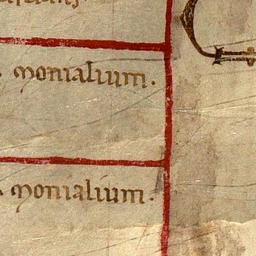 monialium.
monialium.